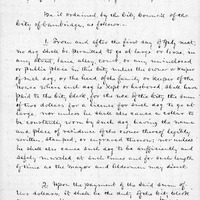 Be it ordained by the City Council of the
City of Cambridge, as follows:
1. From and after the first day of July next,
no dog shall be permitted to go at large or loose, in
any street, lane, alley, court, or any uninclosed
or public place in this City, unless the owner or keeper
of such dog, or the head of the family or keeper of the
house where such dog is kept or harbored, shall have
paid to the City Clerk, for the use of the City, the sum
of two dollars for a license for such dog to go at
large, nor unless he shall also cause a collar to
be constantly worn by such dog, having the name
and place of residence of the owner thereof legibly
written, stamped, or engraved thereon, nor unless
he shall also cause such dog to be sufficiently and
safely muzzled at such times and for such length
of time as the Mayor and Aldermen may direct.
2. Upon the payment of the said sum of
two dollars, it shall be the duty of the City Clerk